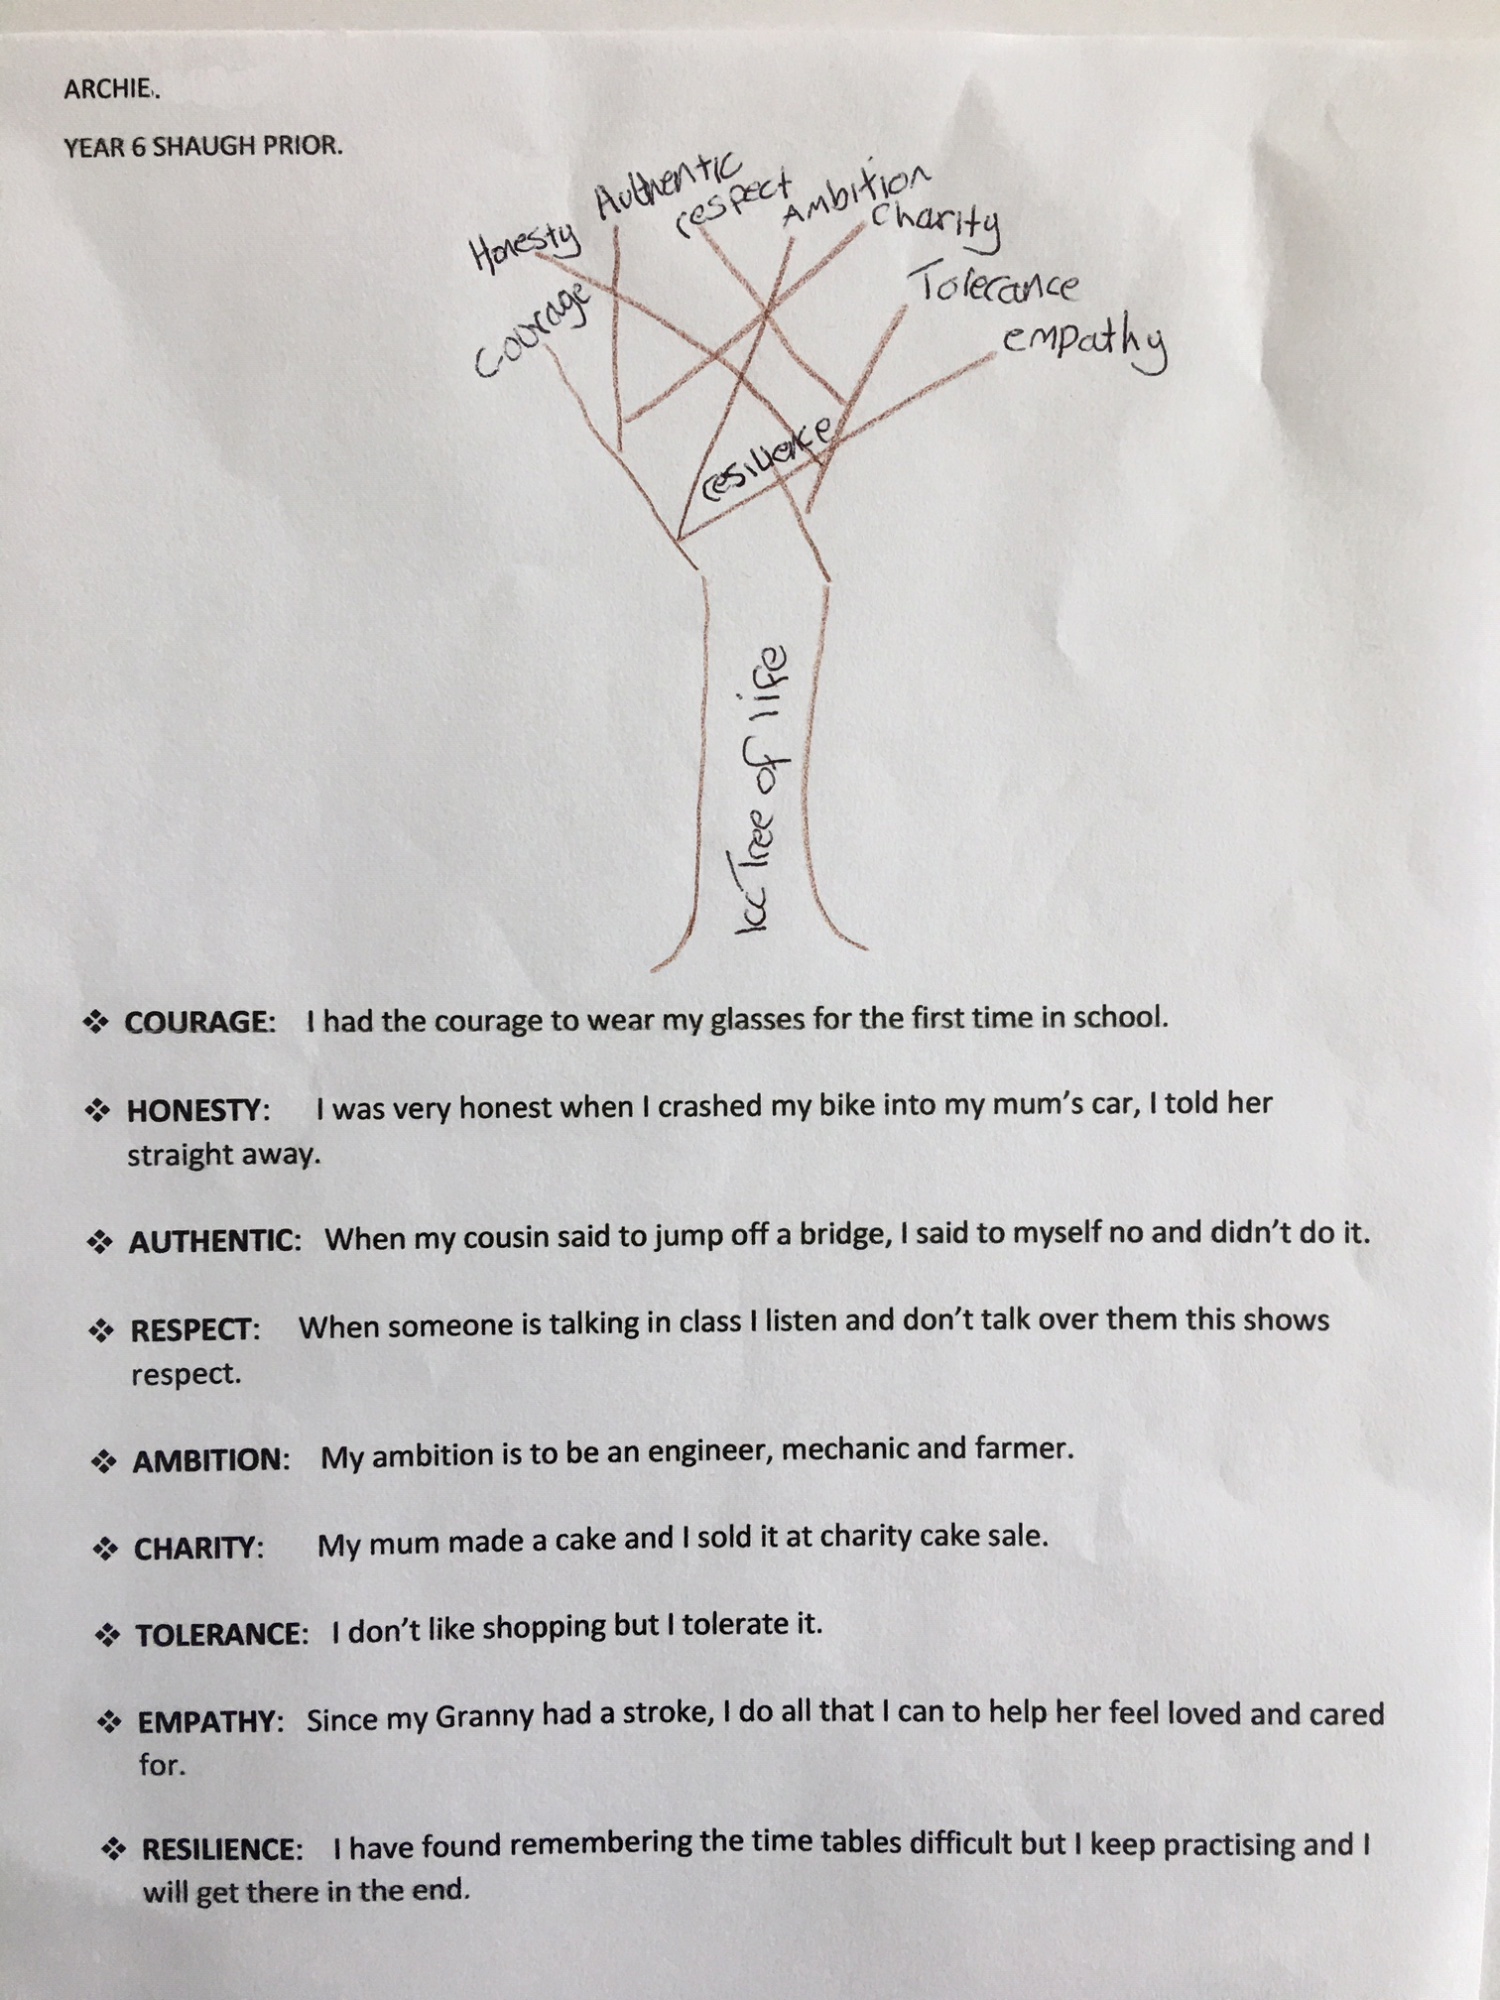 ARCHIE.
YEAR 6 SHAUGH PRIOR.
Authentic
respect
Ambition
Honesty
Charity
Courage
Tolerance
empathy
resilience
Icc Tree of life
❖ COURAGE: I had the courage to wear my glasses for the first time in school.
❖ HONESTY: I was very honest when I crashed my bike into my mum's car, I told her
straight away.
❖ AUTHENTIC: When my cousin said to jump off a bridge, I said to myself no and didn't do it.
❖ RESPECT: When someone is talking in class I listen and don't talk over them this shows
respect.
❖ AMBITION: My ambition is to be an engineer, mechanic and farmer.
❖ CHARITY: My mum made a cake and I sold it at charity cake sale.
❖ TOLERANCE: I don't like shopping but I tolerate it.
❖ EMPATHY: Since my Granny had a stroke, I do all that I can to help her feel loved and cared
for.
❖ RESILIENCE: I have found remembering the time tables difficult but I keep practising and I
will get there in the end.